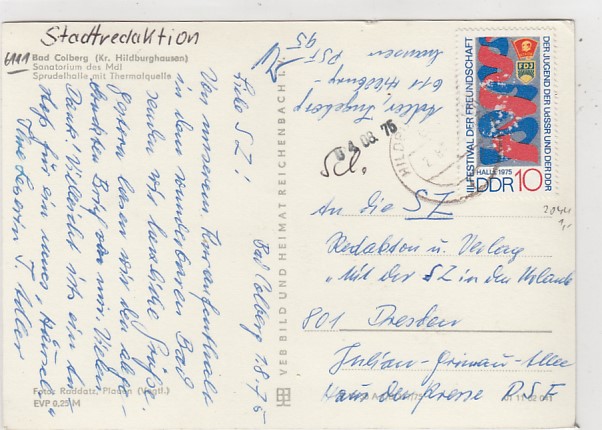 Stadtredaktion
6111
Bad Colberg (Kr. Hildburghausen)
Sanatorium des MdI
Sprudelhalle mit Thermalquelle
Bad Colberg 28.7.75
Liebe SZ!
Von unserem Kuraufenthalt
in dem wunderbaren Bad
senden wir herzliche Grüße.
Gestern lasen wir den abge-
druckten Brief von mir. Vielen
Dank! Vielleicht ists ein An-
stoß für ein neues "Hänsel"
Ihre Leserin I. Adler
Foto: Raddatz, Plauen (Vogtl.)
EVP 0,25 M
VEB BILD UND HEIMAT REICHENBACH I. V.
Adler, Ingeborg
611 Hildburg-
hausen PSF
95
04.08.75
HILDB
Scl.
III. FESTIVAL DER FREUNDSCHAFT
DER JUGEND DER UDSSR UND DER DDR
FDJ
HALLE 1975
DDR 10
2044
1,-
An die SZ
Redaktion u. Verlag
"Mit der SZ in den Urlaub"
801 Dresden
Julian-Grimau-Allee
Haus der Presse PSF